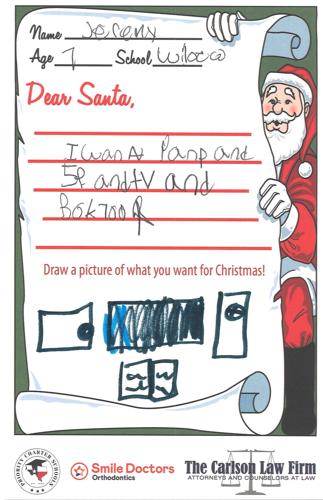 Name Jeremy
Age 7 School Wilcox
Dear Santa,
I wan A Panp and
5P and tv and
Draw a picture of what you want for Christmas!
PRIORITY CHARTER SCHOOLS
Smile Doctors
Orthodontics
The Carlson Law Firm
ATTORNEYS AND COUNSELORS AT LAW